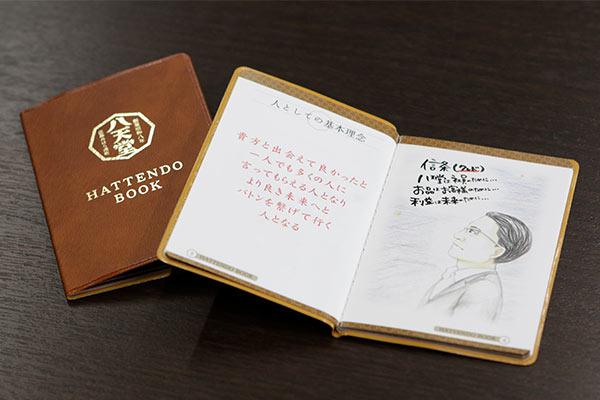 八天堂
HATTENDO
BOOK
人としての基本理念
貴方と出会えて良かったと
一人でも多くの人に
言ってもらえる人となり
より良き未来へと
バトンを繋げて行く
人となる
HATTENDO BOOK
信条(クレド)
八天堂は社員のために…
お品はお客様のために…
利益は未来のために…
HATTENDO BOOK
4